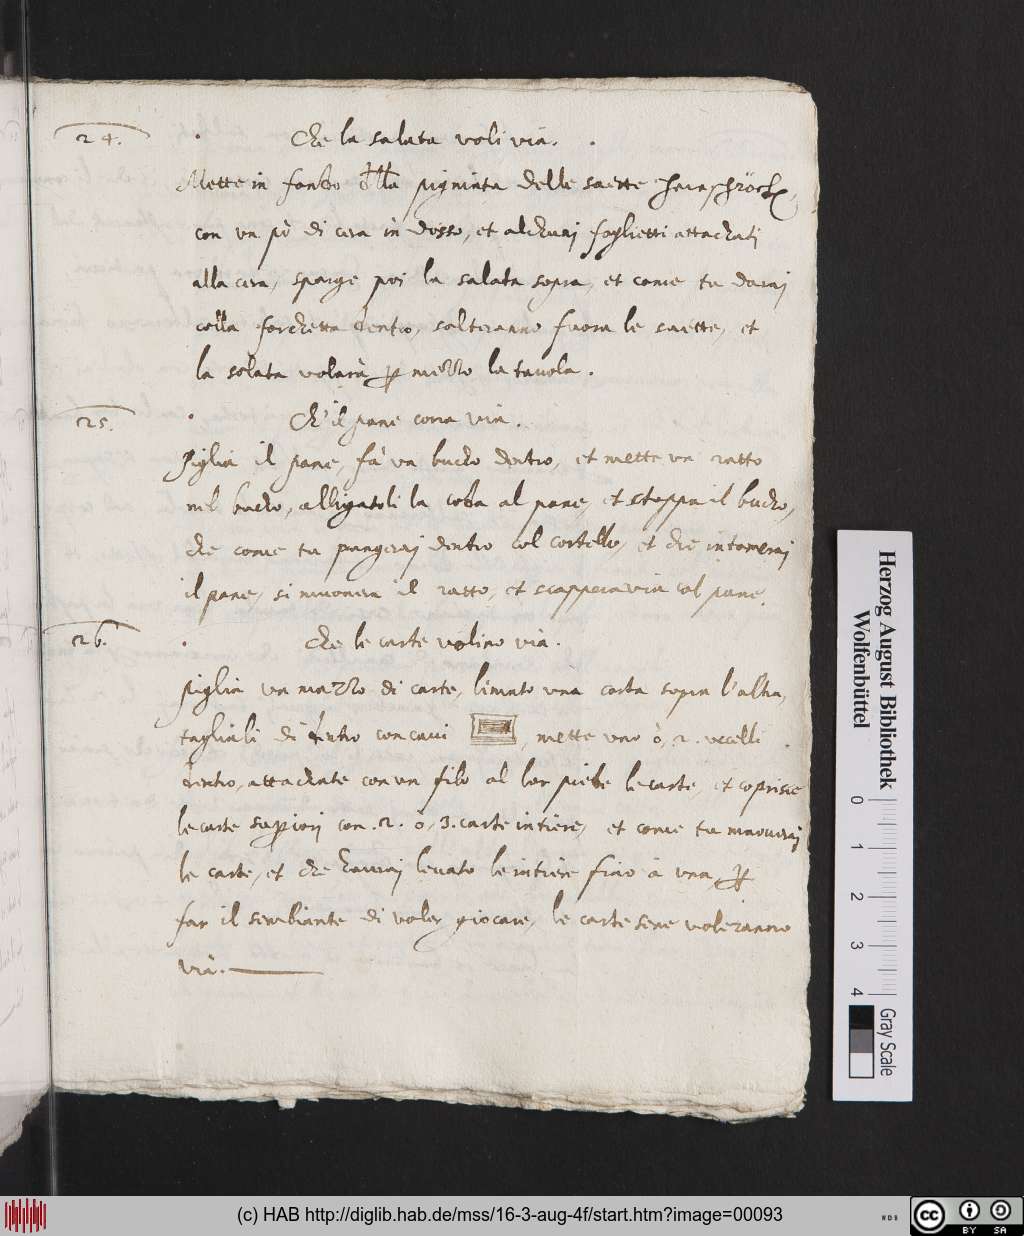 24.
Che la salata voli via.
Mette in fondo della pigninta delle saette
con un pò di cera in dosso, et alchuni foglietti attachati
alla cera, sparge poi la salata sopra, et come tu darai
colla forchetta dentro, salteranno fuora le saette, et
la salata volarà p mezzo la tavola.
25.
Ch'il pane corra via.
Piglia il pane, fà un bucho dentro, et mette un ratto
nel bucho, alligatoli la coda al pane, et stoppa il bucho,
che come tu pungerai dentro col cortello, et che intomerai
il pane, si muovera il ratto, et scappera via col pane.
26.
Che le carte volino via.
Piglia un mazzo di carte, limato una carta sopra l'altra,
tagliali di dentro concavi, mette uno ò, 2. uccelli
dentro, attachate con un filo al lor piede le carte, et coprisce
le carte superiori con .2. ò, 3. carte intiere, et come tu muoverai
le carte, et che haverai levato le intiere fino à una, p
far il sembiante di voler giocare, le carte sene voleranno
via.
Herzog August Bibliothek
Wolfenbüttel
0 1 2 3 4
Gray Scale
(c) HAB http://diglib.hab.de/mss/16-3-aug-4f/start.htm?image=00093
WDB
cc
BY SA